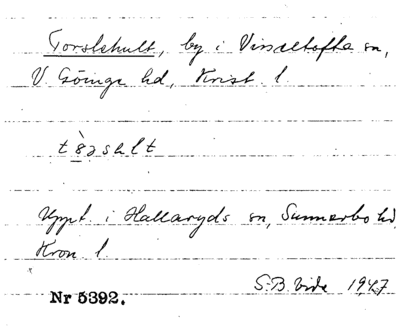 Torslehult, by i Visseltofta sn,
V Göinge hd, Krist. l.
Uppt. i Hallaryds sn, Sunnerbo hd
Kron. l.
S.B. Vide 1947
Nr 5392.